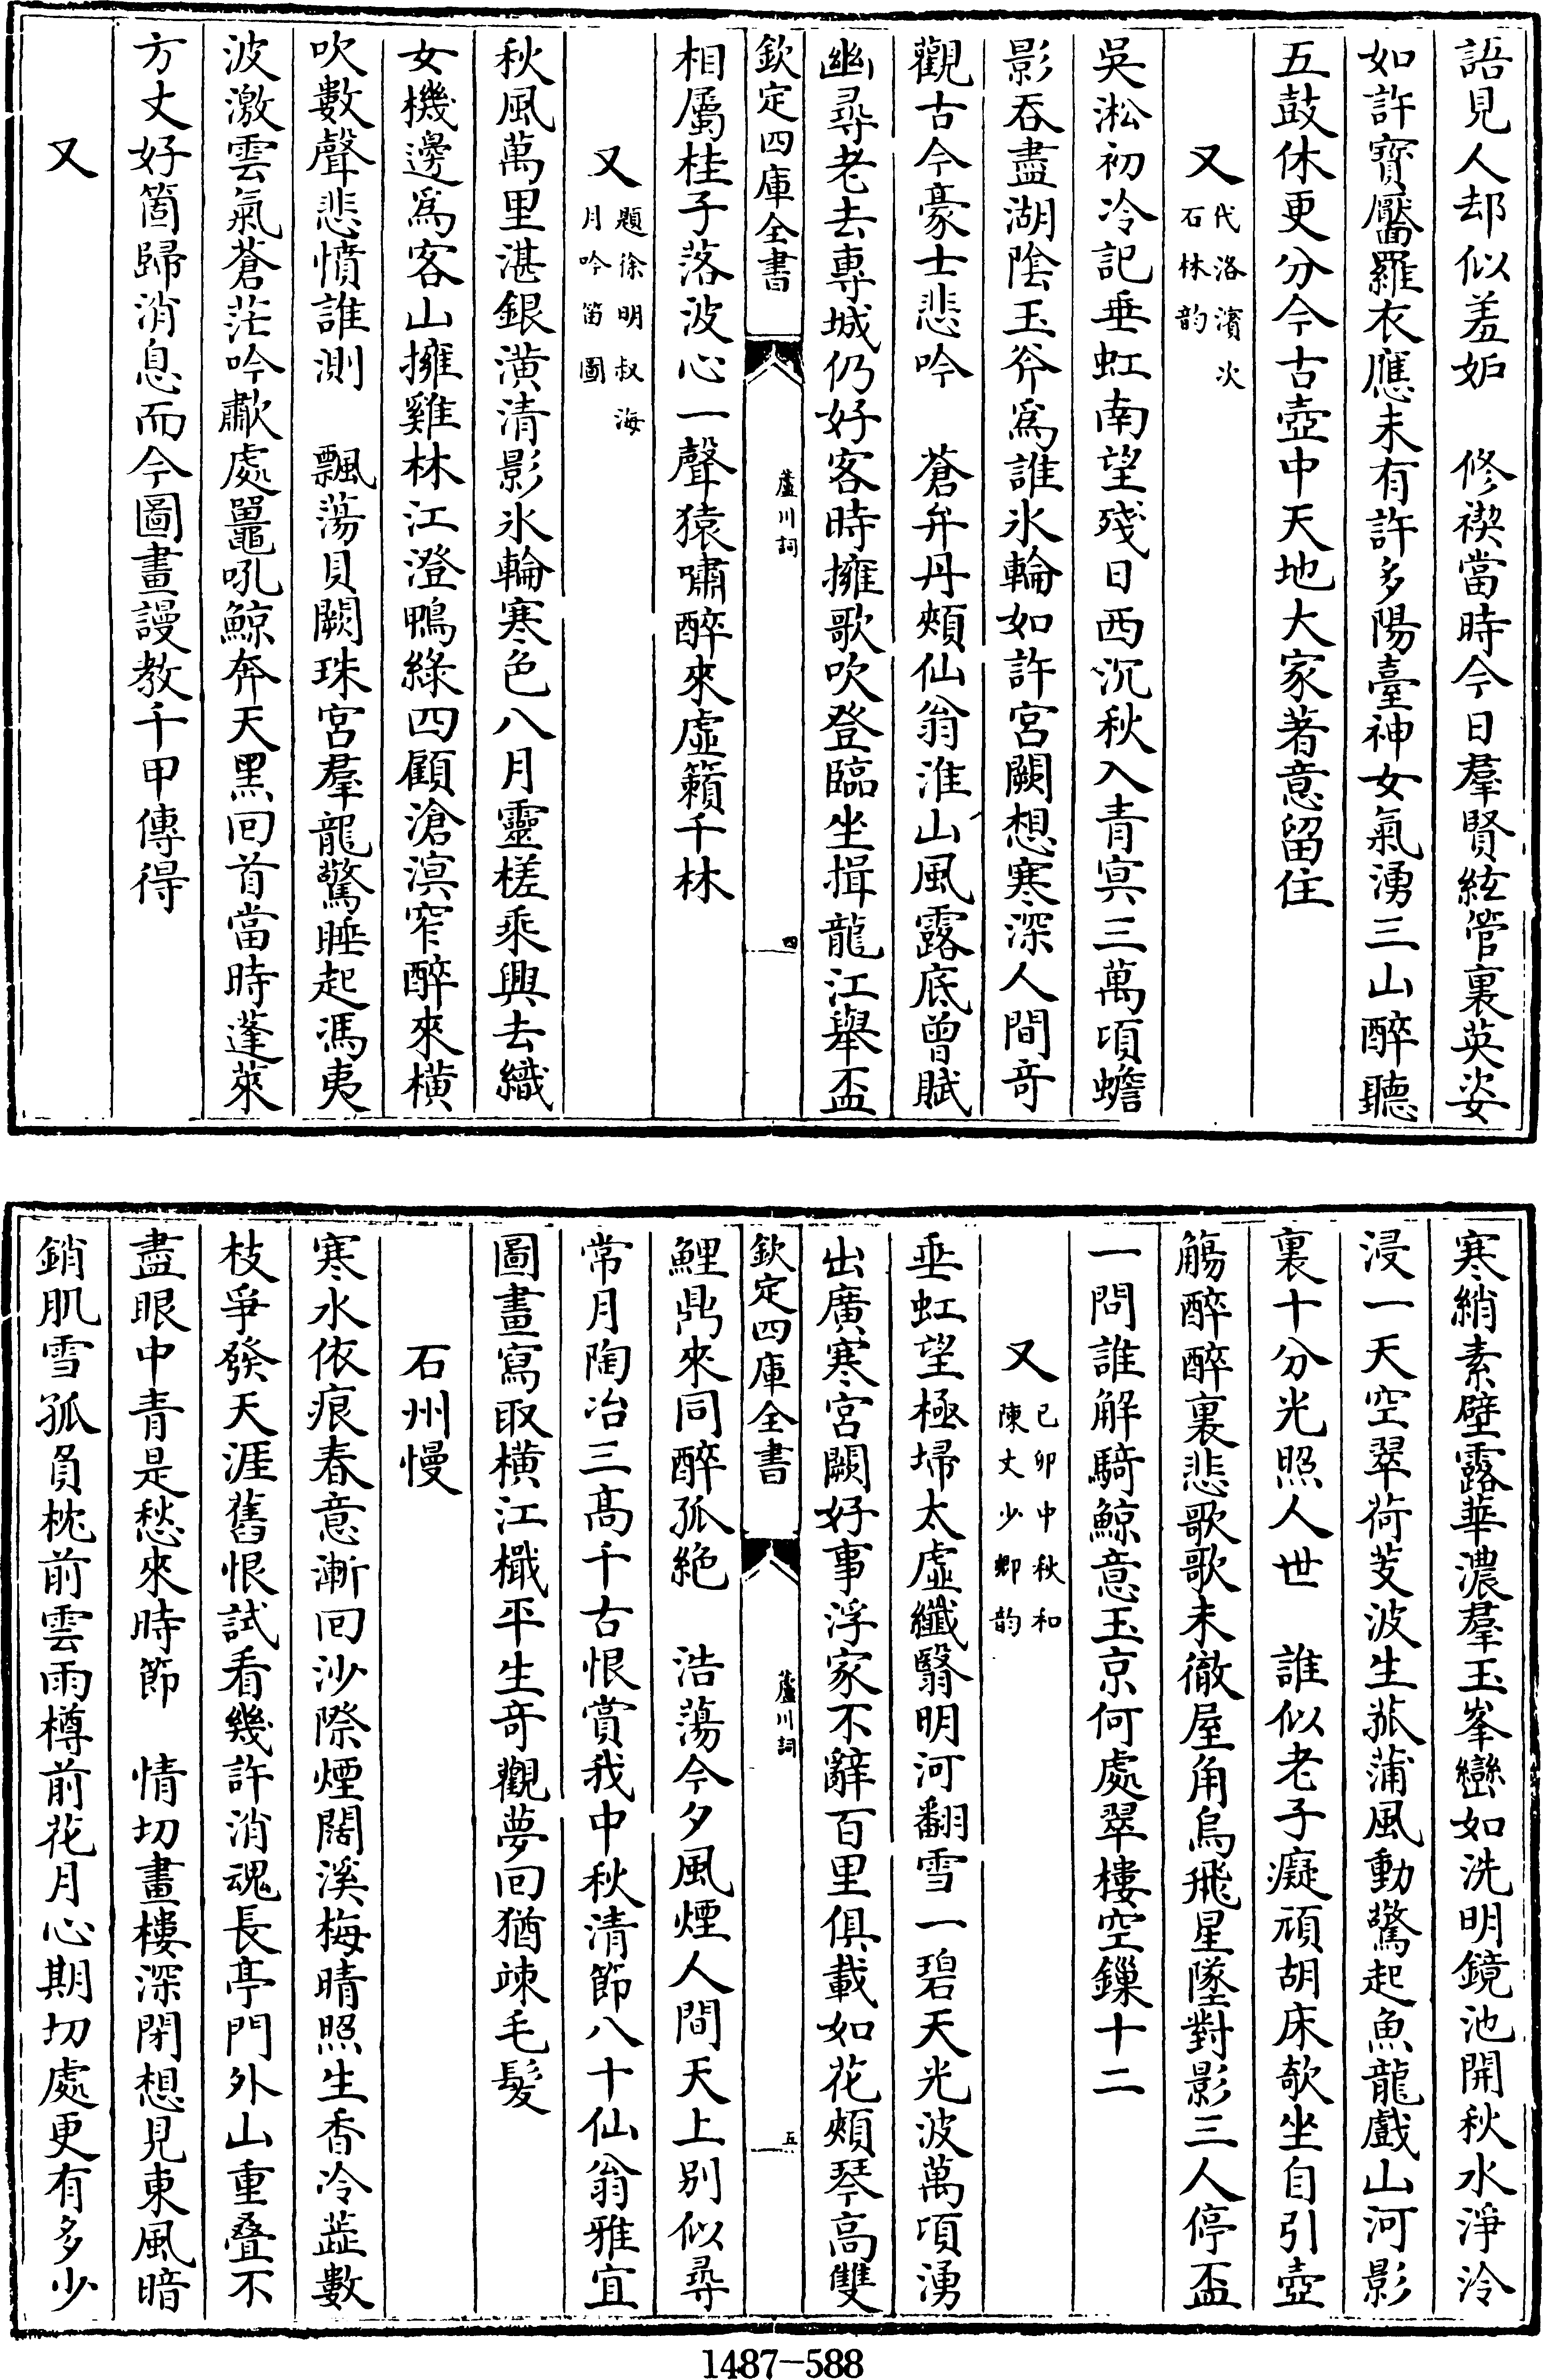 語見人却似羞妒　修禊當時今日羣賢絃管裏英姿
如許寳靨羅衣應未有許多陽臺神女氣湧三山醉聽
五鼓休更分今古壺中天地大家著意留住
又代洛濱次石林韵
吳淞初冷記垂虹南望殘日西沉秋入青冥三萬項蟾
影吞盡湖陰玉斧爲誰氷輪如許宮闕想寒深人間竒
觀古今豪士悲吟　蒼弁丹頰仙翁淮山風露底曾賦
幽尋老去專城仍好客時擁歌吹登臨坐揖龍江舉盃
欽定四庫全書　蘆川詞　四
相屬桂子落波心一聲猿嘯醉來虛籟千林
又題徐明叔海月吟笛圖
秋風萬里湛銀潢清影氷輪寒色八月靈槎乘興去織
女機邊爲客山擁雞林江澄鴨綠四顧滄溟窄醉來横
吹數聲悲憤誰測　飄蕩貝闕珠宮羣龍驚睡起馮夷
波激雲氣蒼茫吟歗處鼉吼鯨奔天黑回首當時蓬萊
方丈好箇歸消息而今圖畫謾教千甲傳得
又
寒綃素壁露華濃羣玉峯巒如洗明鏡池開秋水淨泠
浸一天空翠荷芰波生菰蒲風動驚起魚龍戲山河影
裏十分光照人世　誰似老子癡頑胡床欹坐自引壺
觴醉醉裏悲歌歌未徹屋角烏飛星墜對影三人停盃
一問誰解騎鯨意玉京何處翠樓空鏁十二
又己卯中秋和陳丈少卿韵
垂虹望極埽太虛纖翳明河翻雪一碧天光波萬頃湧
出廣寒宮闕好事浮家不辭百里俱載如花頰琴高雙
欽定四庫全書　蘆川詞　五
鯉鼎來同醉孤絶　浩蕩今夕風煙人間天上别似尋
常月陶冶三髙千古恨賞我中秋清節八十仙翁雅宜
圖畫寫取橫江檝平生竒觀夢回猶竦毛髮
石州慢
寒水依痕春意漸回沙際煙闊溪梅晴照生香冷蘂數
枝爭發天涯舊恨試看幾許消魂長亭門外山重叠不
盡眼中青是愁來時節　情切畫樓深閉想見東風暗
銷肌雪孤負枕前雲雨樽前花月心期切處更有多少
1487-588